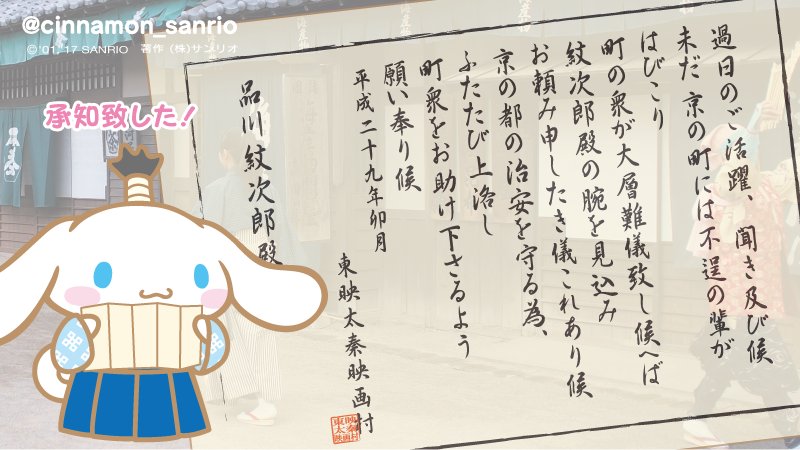 @cinnamon_sanrio
© '01, '17 SANRIO 著作 (株)サンリオ
承知致した!
過日のご活躍、聞き及び候
未だ京の町には不逞の輩が
はびこり
町の衆が大層難儀致し候へば
紋次郎殿の腕を見込み
お頼み申したき儀これあり候
京の都の治安を守る為、
ふたたび上洛し
町衆をお助け下さるよう
願い奉り候
平成二十九年卯月
東映太秦映画村
品川紋次郎殿